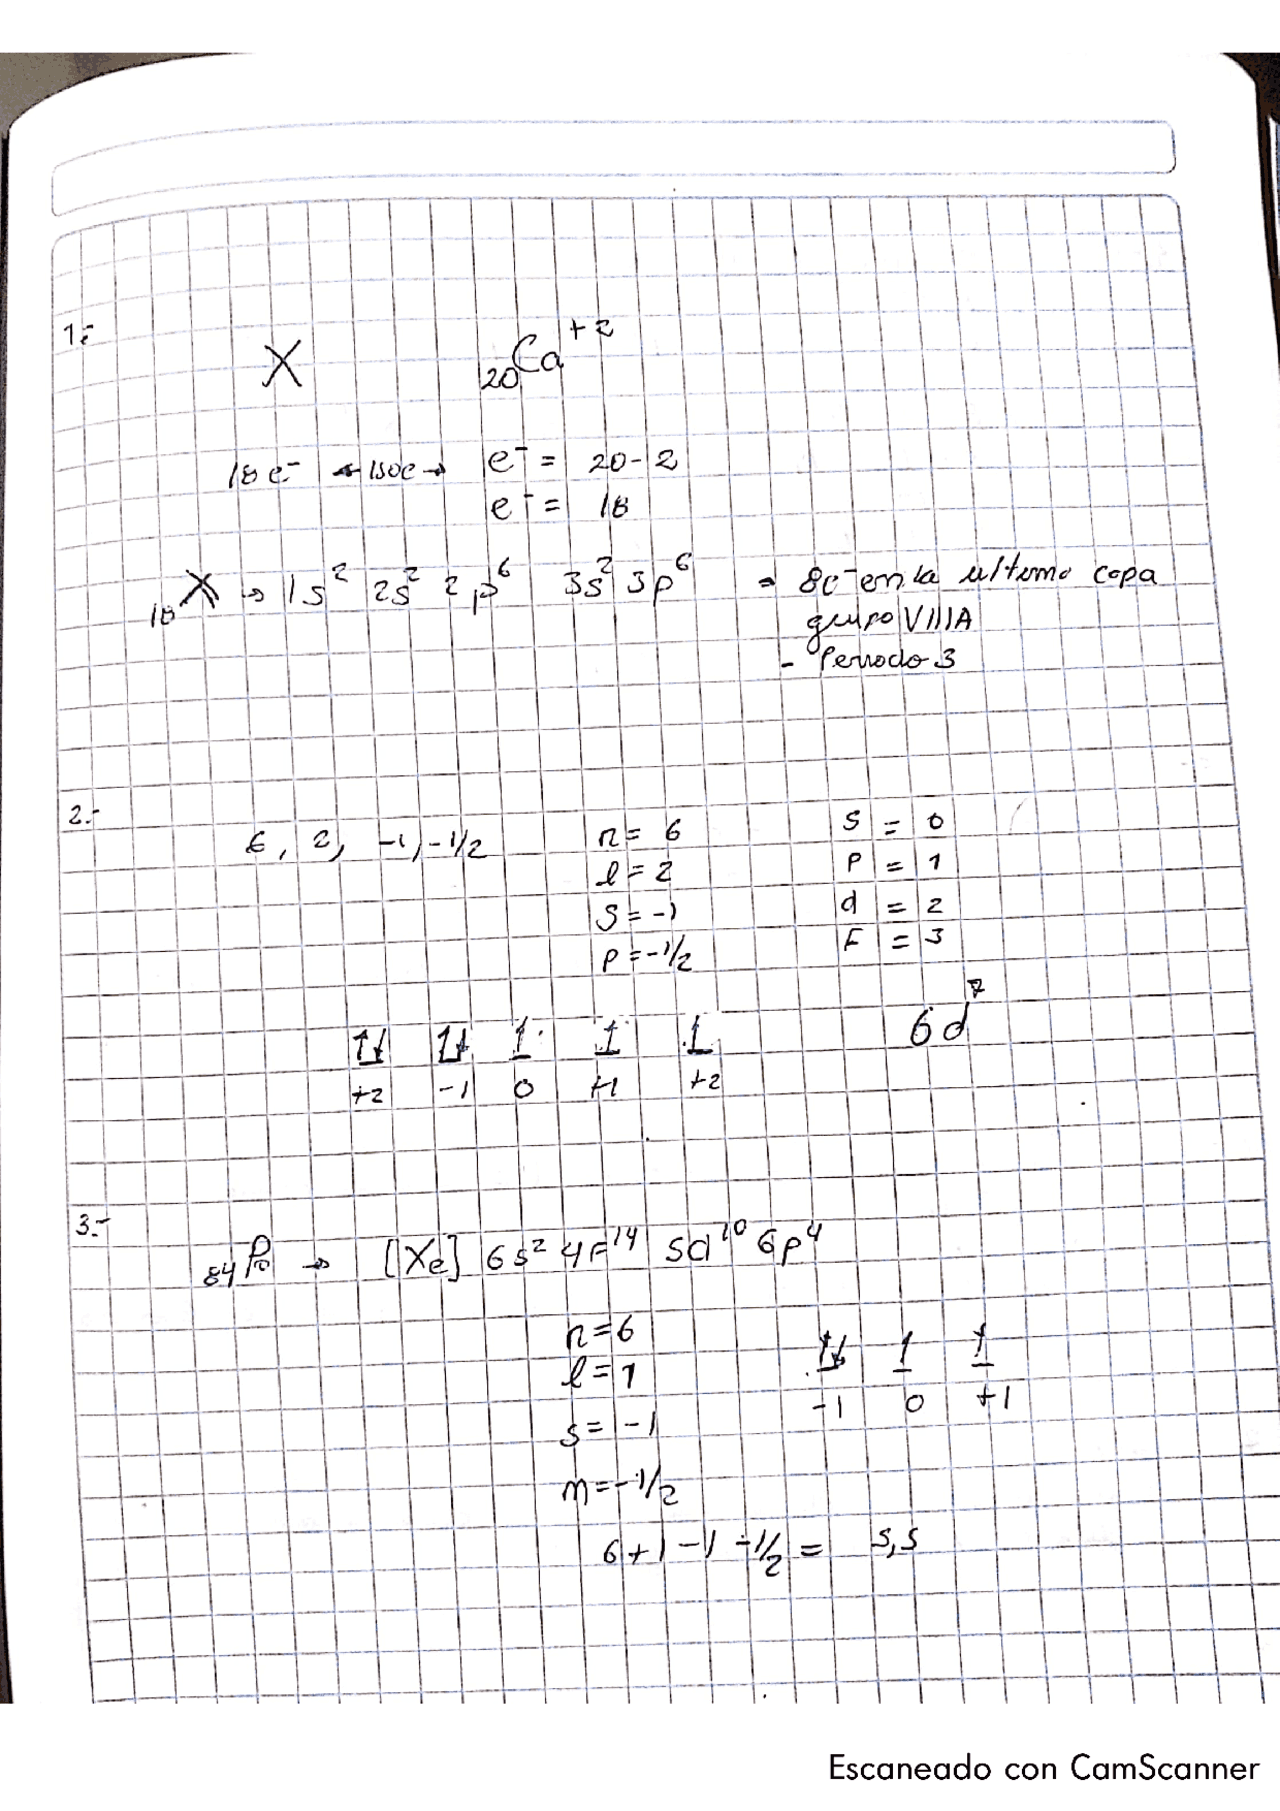 1.-
X ₂₀Ca⁺²
18e⁻ ← isoe → e⁻ = 20-2
e⁻ = 18
₁₈X → 1s² 2s² 2p⁶ 3s² 3p⁶ = 8e⁻ en la ultimo capa
grupo VIIIA
- Periodo 3
2.-
6, 2, -1, -1/2 n = 6 s = 0
l = 2 p = 1
s = -1 d = 2
p = -1/2 F = 3
6d⁷
↑↓ ↑↓ ↑ ↑ ↑
+2 -1 0 +1 +2
3.-
₈₄Po → [Xe] 6s² 4F¹⁴ 5d¹⁰ 6p⁴
n = 6
l = 1 ↑↓ ↑ ↑
s = -1 -1 0 +1
m = -1/2
6+1-1-1/2 = 5,5
Escaneado con CamScanner